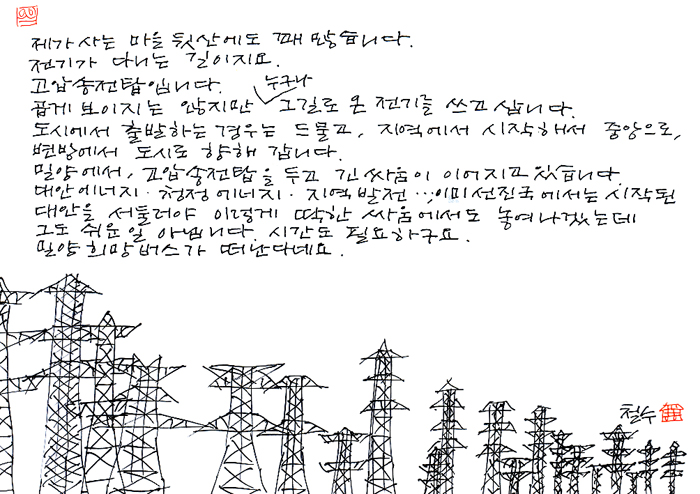 제가 사는 마을 뒷산에도 꽤 많습니다.
전기가 다니는 길이지요.
고압송전탑입니다.
곱게 보이지는 않지만 누구나 그길로 온 전기를 쓰고 삽니다.
도시에서 출발하는 경우는 드물고, 지역에서 시작해서 중앙으로,
변방에서 도시로 향해 갑니다.
밀양에서, 고압송전탑을 두고 긴 싸움이 이어지고 있습니다.
대안에너지·청정에너지·지역발전…, 이미 선진국에서는 시작된
대안을 서둘러야 이렇게 딱한 싸움에서도 놓여나겠는데
그도 쉬운일 아닙니다. 시간도 필요하구요.
밀양희망버스가 떠난다네요.
철수